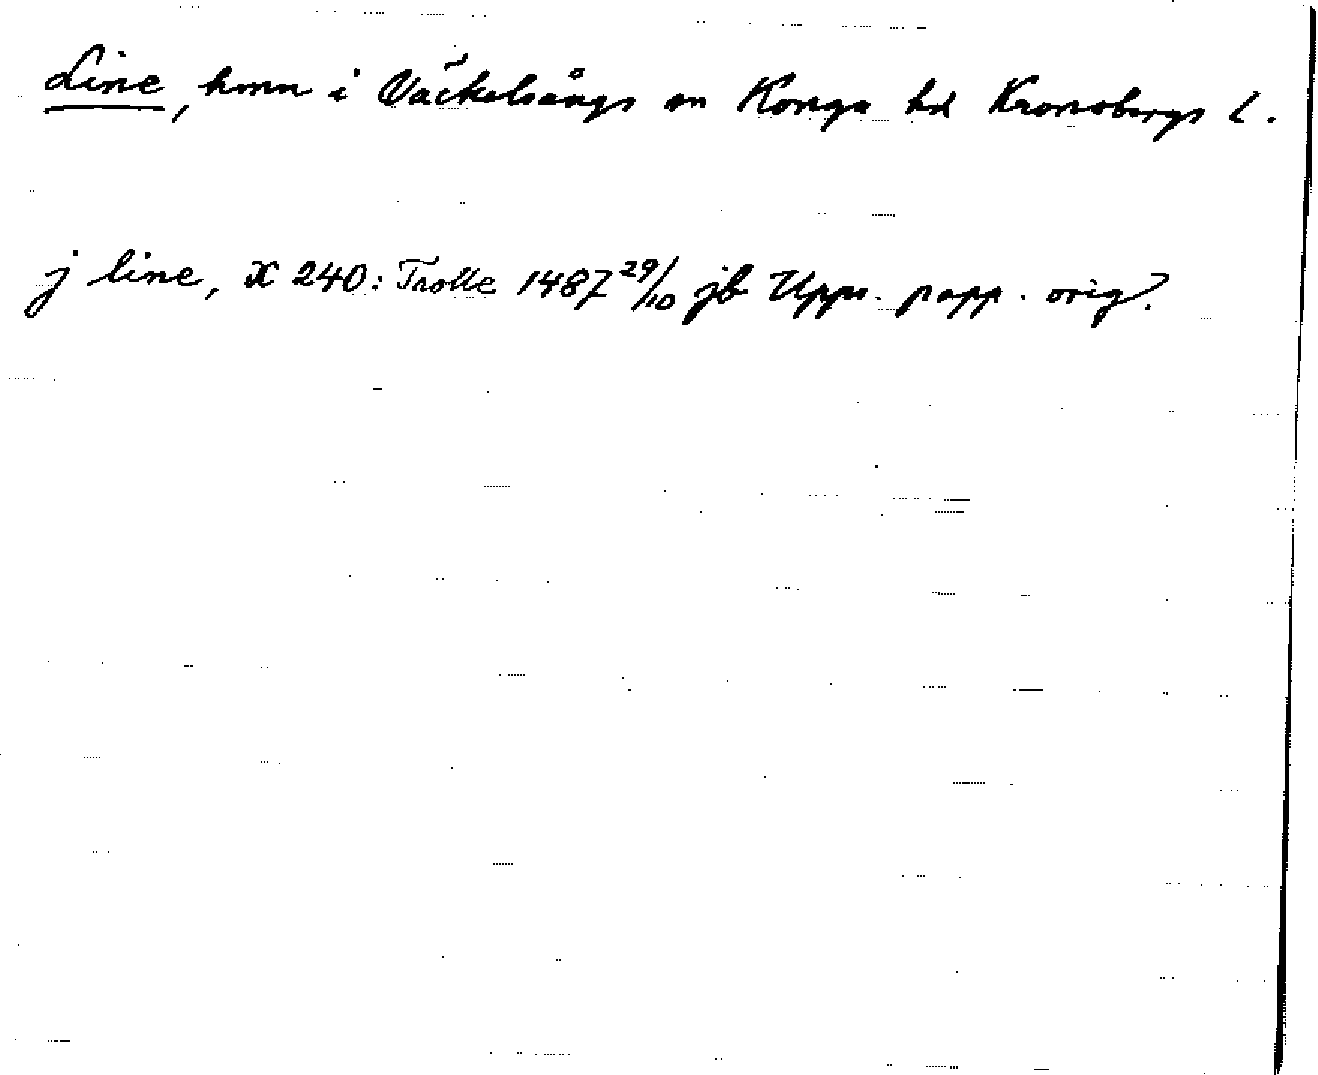 Line, hmn i Väckelsångs sn Konga hd Kronobergs l.
j line, X 240: Trolle 1487 29/10 jb Upps. papp. orig.